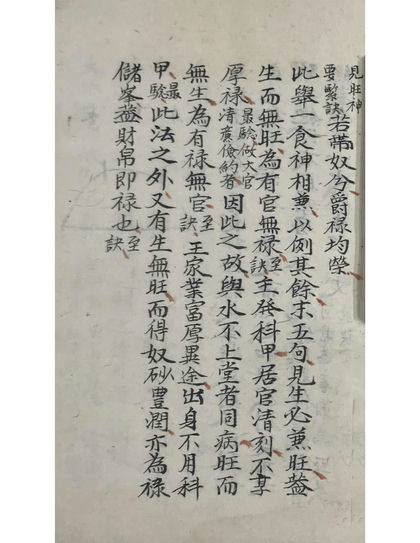 見旺神要緊訣若帶奴兮爵祿均榮
此舉一食神相兼以例其餘末五句見生必兼旺蓋
生而無旺為有官無祿至訣主發科甲居官清刻不享
厚祿最驗做大官清廉儉約者因此之故與水不上堂者同病旺而
無生為有祿無官至訣主家業富厚異途出身不用科
甲最驗此法之外又有生無旺而得奴砂豐潤亦為祿
儲峯蓋財帛即祿也至訣